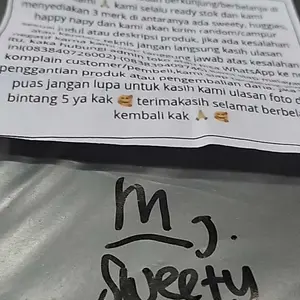 kunjung/berbelanja di
kami 🙏 kami selalu ready stok dan kami
menyediakan 3 merk di antaranya ada sweety, huggies,
happy hapy dan kami akan kirim random/campur
judul atau deskripsi produk, jika ada kesalahan
teknis jangan langsung kasih ulasan
jawab atas kesalahan
WhatsApp ke
komplain customer/pembeli
penggantian produk atau pengembalian dana, jika
puas jangan lupa untuk kasih kami ulasan foto d
bintang 5 ya kak 🥰 terimakasih selamat berbela
kembali kak 🙏 🥰
M J.
Sweety